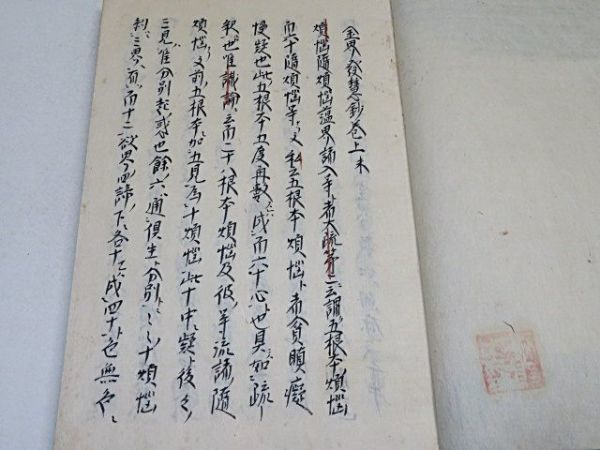 金界發慧鈔卷上末
煩惱隨煩惱蘊界諸入乎者大疏第二云謂五根本煩惱
百六十隨煩惱等文 私云五根本煩惱者貪瞋癡
慢疑也此五根本五度再數成百六十心也具如疏
釋也唯識論云百二十八根本煩惱及彼等流諸隨
煩惱文前五根本加五見為十煩惱此十中疑後
三見唯分別起惑也餘六通俱生分別十煩惱
三界而百十二欲界四諦下各十成四十色無色